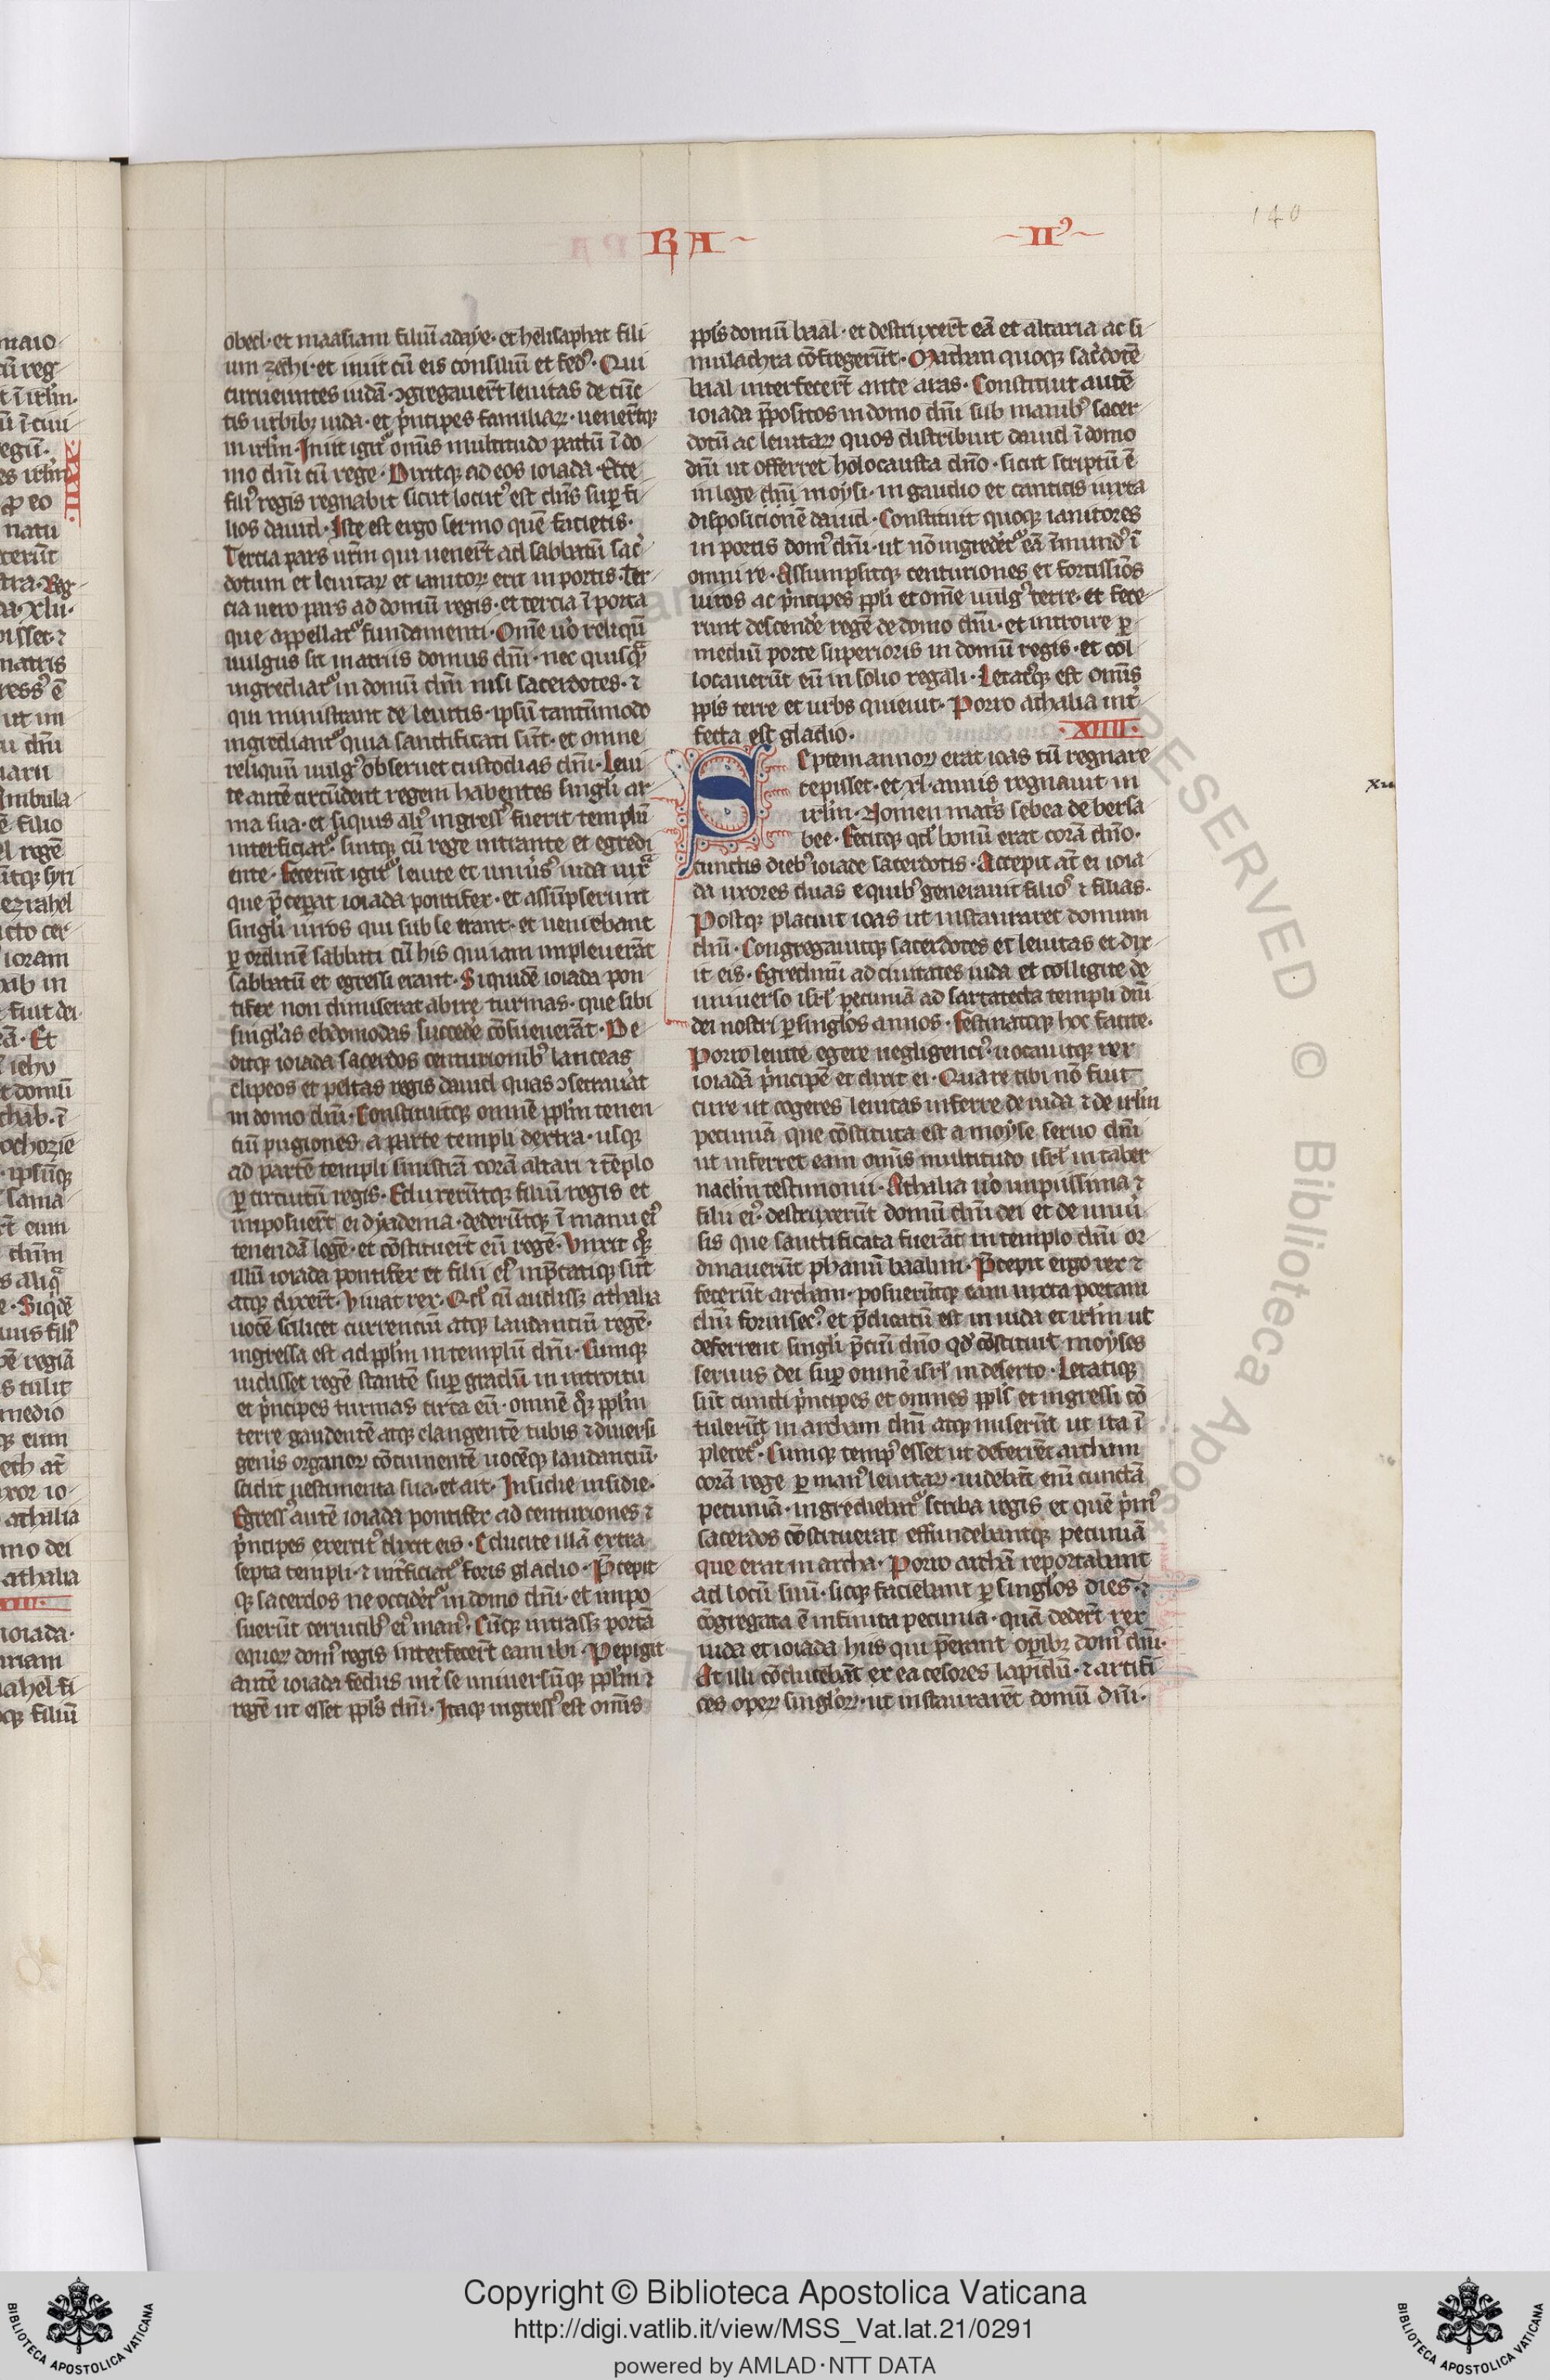 140
RA
II⁹
obed · et maasiam filiū adaye · et helisaphat fili
um zechi · et iniit cū eis consiliū et fed⁹ · Qui
circueuntes iudā · ↄgregauert̄ leuitas de cūc
tis urbibꝫ iuda · et pͥncipes familiaꝝ · uenert̄qꝫ
in irlm̄ · Iniit igit͛ om̄is multitudo pactū ī do
mo dn̄i cū rege · Dixitqꝫ ad eos ioiada · Ecce
fili⁹ regis regnabit sicut locut⁹ est dn̄s suꝑ fi
lios dauid · Iste est ergo sermo quē facietis ·
Tercia pars ur̄m qui uenert̄ ad sabbatū sac̉
dotum et leuitaꝝ et ianitoꝝ erit in portis · Ter
cia uero pars ad domū regis · et tercia ī porta
que appellat͛ fundamenti · Om̄e uͦo reliqū
uulgus sit in atriis domus dn̄i · nec quisqͣ
ingrediat͛ in domū dn̄i nisi sacerdotes · ⁊
qui ministrant de leuitis · ipsū tantūmodo
ingrediant͛ quia sanctificati sūt · et omne
reliquū uulg⁹ obseruet custodias dn̄i · Leui
te autē circūdent regem habentes singli ar
ma sua · et siquis ali⁹ ingress⁹ fuerit templū
interficiat͛ · sintqꝫ cū rege intrante et egredi
ente · Fecerūt igit͛ leuite et uniūs⁹ iuda iuxͣ
que p̄ceꝑat ioiada pontifex · et assūpserunt
singli uiros qui sub se erant · et ueniebant
ꝑ ordinē sabbati cū his qui iam impleuerāt
sabbatū et egressi erant · Siquidē ioiada pon
tifex non dimiserat abire turmas · que sibi
singlas ebdomodas succedē cōsueuerāt · De
ditqꝫ ioiada sacerdos centurionib⁹ lanceas
clipeos et peltas regis dauid quas ↄsecrauāt
in domo dn̄i · Constituitqꝫ omnē ppl̄m tenen
ciū pugiones a parte templi dextra · usqꝫ
ad partē templi sinistrā corā altari ⁊ tēplo
ꝑ circuitū regis · Eduxerūtqꝫ filiū regis et
imposuert̄ ei dyadema · dederūtqꝫ ī manu ei⁹
tenendā legē · et cōstituert̄ eū regē · Vnxit qͦꝫ
illū ioiada pontifex et filii ei⁹ inp̄catiqꝫ sūt
atqꝫ dixert̄ · Viuat rex · Qd̄ cū audissꝫ athalia
uocē scilicet currenciū atqꝫ laudanciū regē ·
ingressa est ad ppl̄m in templū dn̄i · Cumqꝫ
uidisset regē stantē suꝑ gradū in introitu
et pͥncipes turmas circa eū · omnē qͦꝫ ppl̄m
terre gaudentē atqꝫ clangentē tubis ⁊ diuersi
gen̉is organoꝝ cōcinentē uocēqꝫ laudanciū ·
scidit uestimenta sua · et ait · Insidie insidie ·
Egress⁹ autē ioiada pontifex ad centuriones ⁊
pͥncipes exercit⁹ dixit eis · Educite illā extra
septa templi · ⁊ int̉ficiat͛ foris gladio · P̄cepit
qꝫ sacerdos ne occidēt͛ in domo dn̄i · et impo
suerūt ceruicib⁹ ei⁹ man⁹ · Cūqꝫ intrassꝫ portā
equoꝝ dom⁹ regis interfecert̄ eam ibi · Pepigit
autē ioiada fedus int̉ se uniuersūqꝫ ppl̄m ⁊
regē ut esset ppl̄s dn̄i · Itaqꝫ ingress⁹ est om̄is
ppl̄s domū baal · et destruxert̄ eā et altaria ac si
mulachra cōfregerūt · Mathan quoqꝫ sac̉dotē
baal interfecert̄ ante aras · Constituit autē
ioiada p̄positos in domo dn̄i sub manib⁹ sacer
dotū ac leuitaꝝ quos distribuit dauid ī domo
dn̄i ut offerret holocausta dn̄o · sicut scriptū ē
in lege dn̄i moysi · in gaudio et canticis iuxta
disposicionē dauid · Constituit quoqꝫ ianitores
in portis dom⁹ dn̄i · ut nō ingredēt͛ eā īmund⁹ ī
omni re · Assumpsitqꝫ centuriones et fortissiōs
uiros ac pͥncipes ppl̄i et om̄e uulg⁹ terre · et fece
runt descendē regē de domo dn̄i · et introire ꝑ
mediū porte superioris in domū regis · et col
locauerūt eū in solio regali · Letat⁹qꝫ est om̄is
ppl̄s terre et urbs quieuit · Porro athalia int̉
fecta est gladio ·
· XIIII ·
Septem annoꝝ erat ioas cū regnare
cepisset · et xl · annis regnauit in
irlm̄ · Nomen mat̉s sebea de bersa
bee · Fecitqꝫ qd̄ bonū erat corā dn̄o ·
cunctis dieb⁹ ioiade sacerdotis · Accepit at̄ ei ioia
da uxores duas e quib⁹ generauit filios ⁊ filias ·
Postqꝫ placuit ioas ut instauraret domum
dn̄i · Congregauitqꝫ sacerdotes et leuitas et dix
it eis · Egredimī ad ciuitates iuda et colligite de
uniuerso isrl̄ pecuniā ad sartatecta templi dn̄i
dei nostri ꝑ singlos annos · Festinatūqꝫ hoc facite ·
Porro leuite egere negligenci⁹ · uocauitqꝫ rex
ioiadā pͥncipē et dixit ei · Quare tibi nō fuit
cure ut cogeres leuitas inferre de iuda ⁊ de irlm̄
pecuniā que cōstituta est a moyse seruo dn̄i
ut inferret eam om̄is multitudo isrl̄ in taber
naclm̄ testimonii · Athalia uͦo impiissima ⁊
filii ei⁹ · destruxerūt domū dn̄i dei et de uniū
sis que sanctificata fuerāt in templo dn̄i or
dinauerūt phanū baalim · P̄cepit ergo rex ⁊
fecerūt archam · posuerūtqꝫ eam iuxta portam
dn̄i forinsec⁹ · et p̄dicatū est in iuda et irlm̄ ut
deferrent singli p̄ciū dn̄o qd̄ cōstituit moyses
seruus dei suꝑ omnē isrl̄ in deserto · Letatiqꝫ
sūt cuncti pͥncipes et omnes ppl̄s et ingressi cō
tulerūt in archam dn̄i atqꝫ miserūt ut ita ī
pleret͛ · Cumqꝫ temp⁹ esset ut deferrēt archam
corā rege ꝑ man⁹ leuitaꝝ · uidebāt enī cunctā
pecuniā · ingrediebat͛ scriba regis et quē pͥm⁹
sacerdos cōstituerat effundebantqꝫ pecuniā
que erat in archa · Porro archā reportabant
ad locū suū · sicqꝫ faciebant ꝑ singlos dies · ⁊
cōgregata ē infinita pecunia · quā dedert̄ rex
iuda et ioiada hiis qui p̄erant oꝑibꝫ dom⁹ dn̄i ·
At illi cōducebāt ex ea cesores lapidū · ⁊ artifi
ces oꝑeꝝ singloꝝ · ut instaurarēt domū dn̄i ·
Copyright © Biblioteca Apostolica Vaticana
http://digi.vatlib.it/view/MSS_Vat.lat.21/0291
powered by AMLAD·NTT DATA